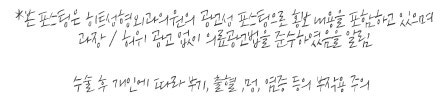 *본 포스팅은 히트성형외과의원의 광고성 포스팅으로 홍보 내용을 포함하고 있으며
과장 / 허위 광고 없이 의료광고법을 준수하였음을 알림
수술 후 개인에 따라 붓기, 출혈, 멍, 염증 등의 부작용 주의